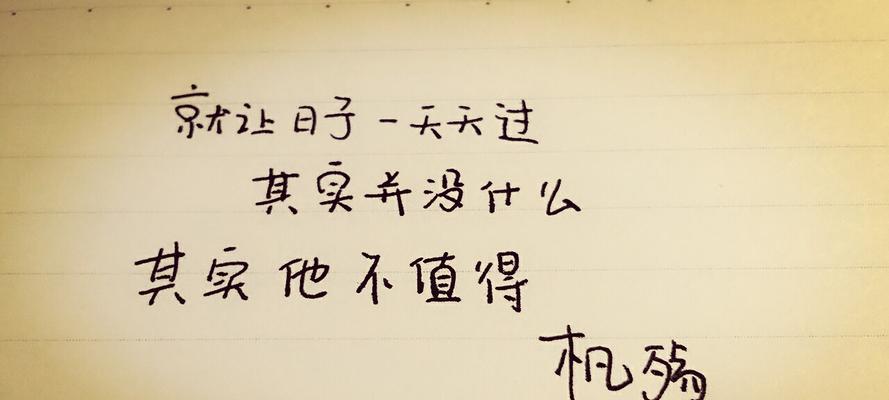 就让日子一天天过
其实并没什么
其实他不值得
杋殇